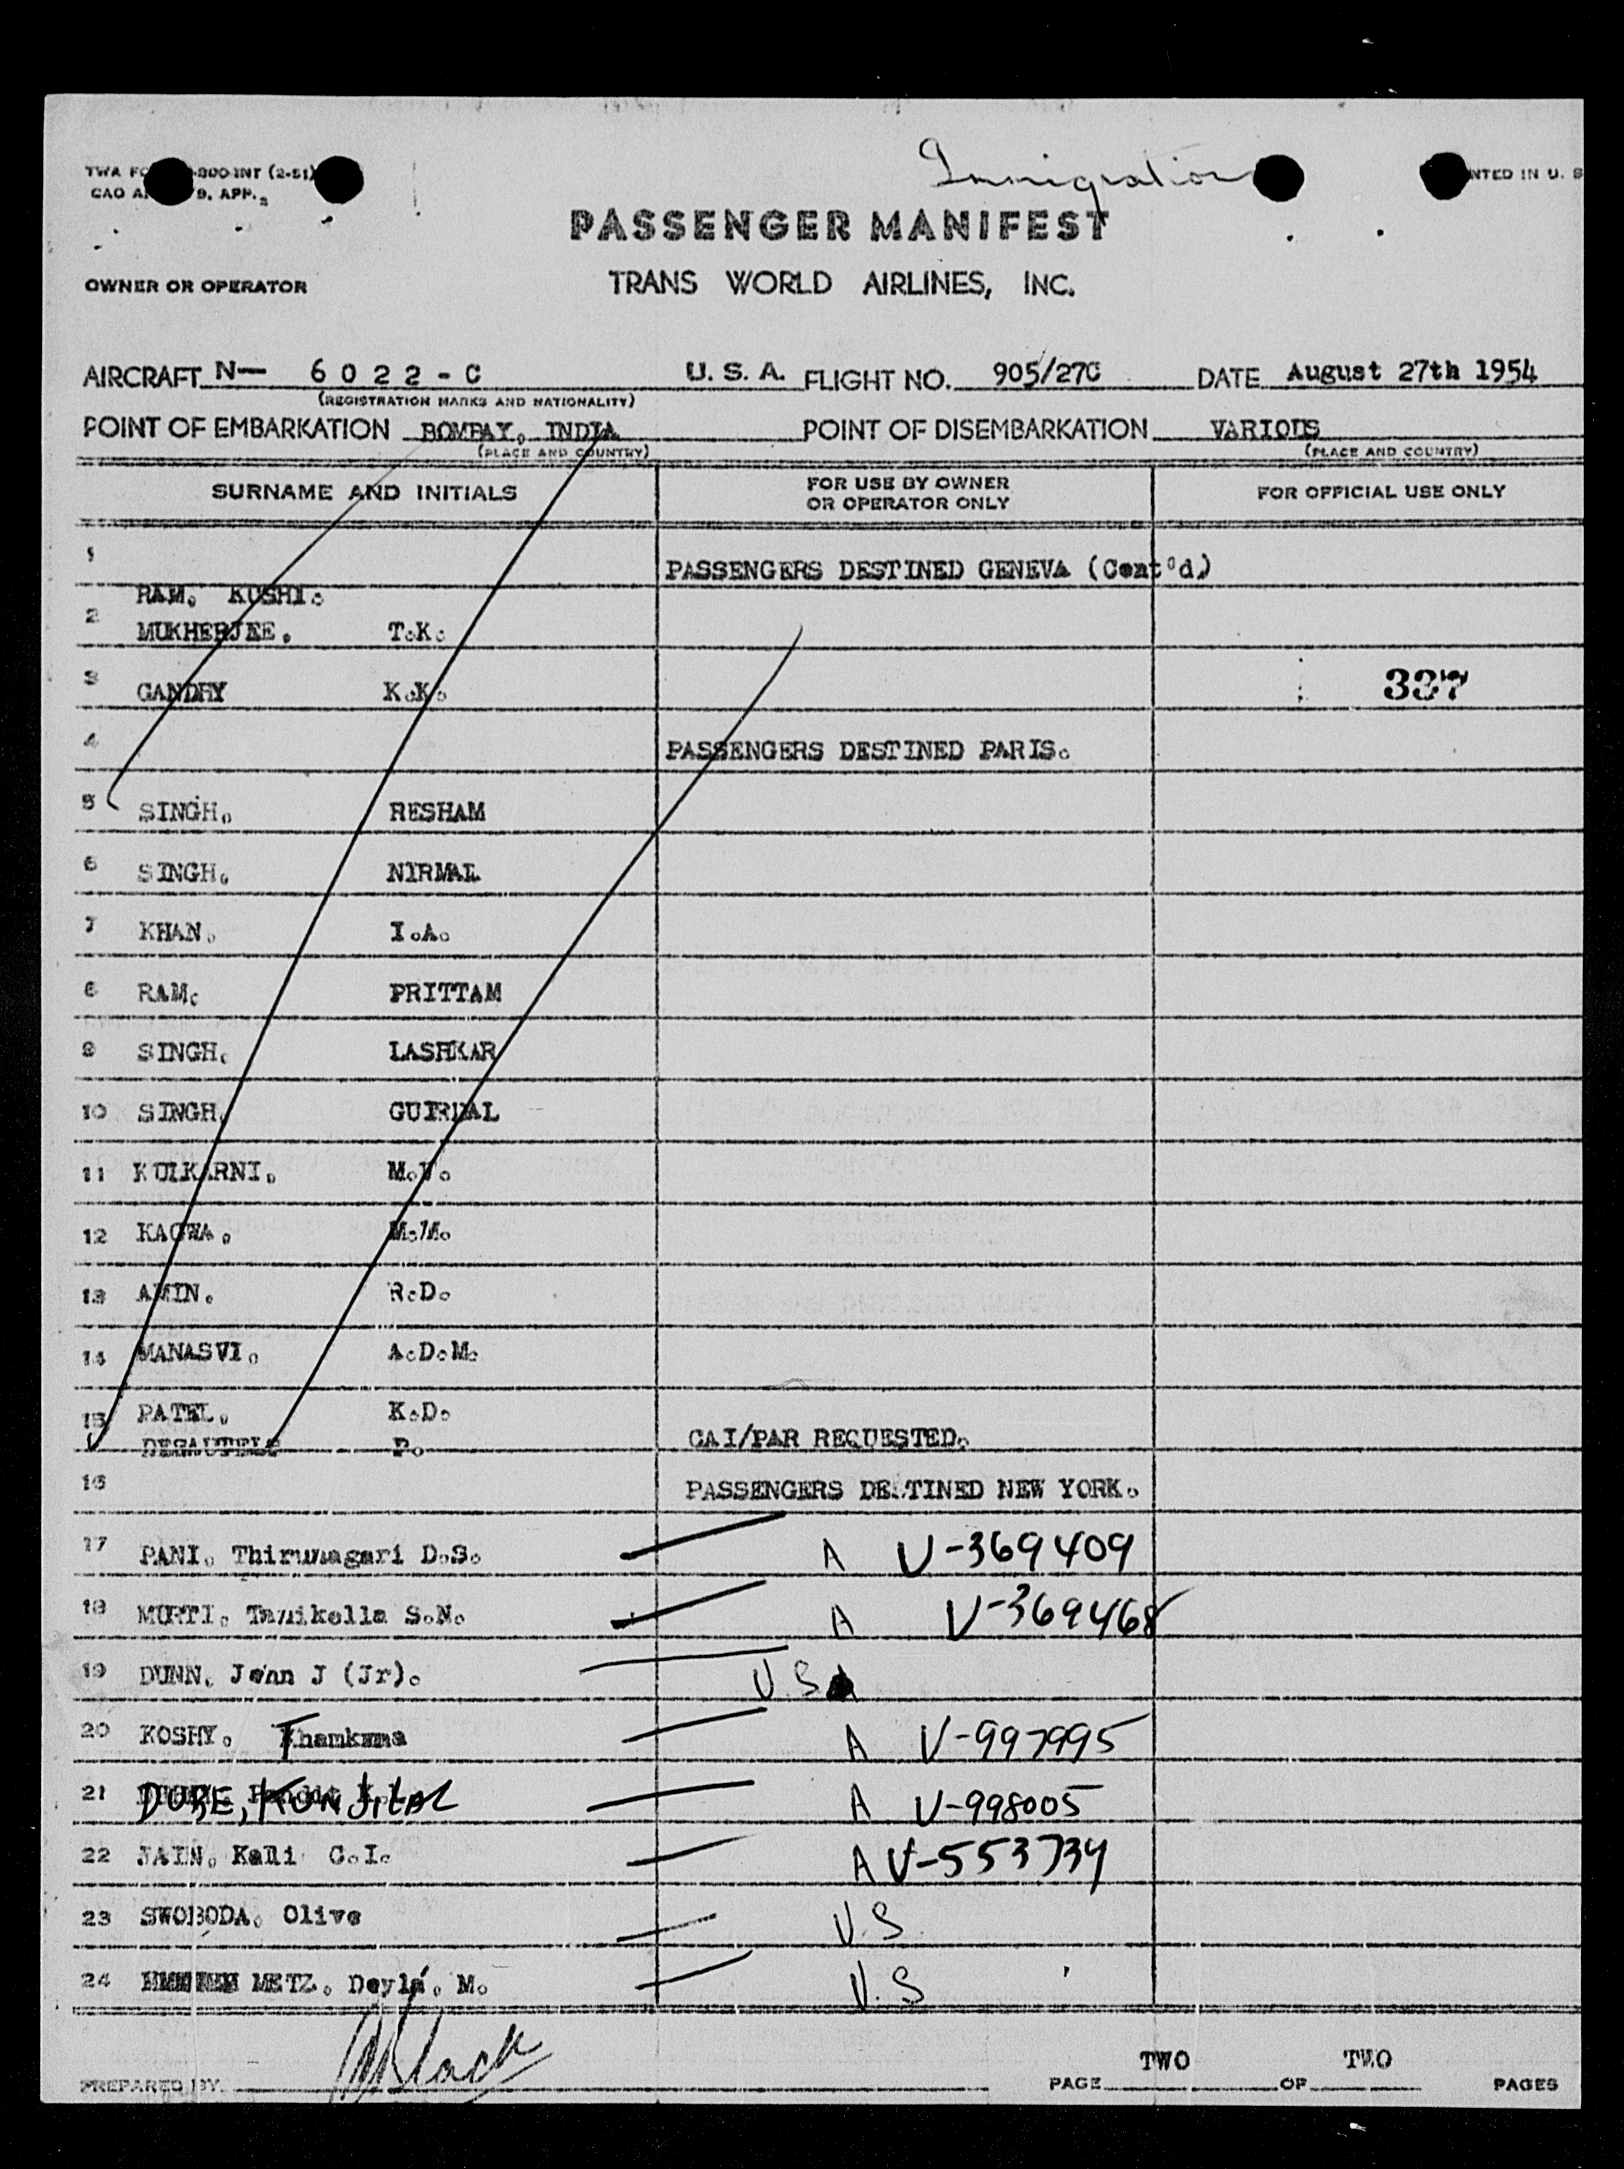 Immigration
TWA FO -800-INT (2-51)
CAO AN 9, APP. 2
NTED IN U. S
PASSENGER MANIFEST
OWNER OR OPERATOR
TRANS WORLD AIRLINES, INC.
AIRCRAFT N— 6 0 2 2 - C U. S. A. FLIGHT NO. 905/27C DATE August 27th 1954
(REGISTRATION MARKS AND NATIONALITY)
POINT OF EMBARKATION BOMBAY, INDIA POINT OF DISEMBARKATION VARIOUS
(PLACE AND COUNTRY) (PLACE AND COUNTRY)
SURNAME AND INITIALS FOR USE BY OWNER OR OPERATOR ONLY FOR OFFICIAL USE ONLY
1 PASSENGERS DESTINED GENEVA (Cont'd.)
RAM. KUSHI.
2 MUKHERJEE. T.K.
3 GANDHY K.K. 337
4 PASSENGERS DESTINED PARIS.
5 SINGH. RESHAM
6 SINGH. NIRMAL
7 KHAN. I.A.
8 RAM. PRITTAM
9 SINGH. LASHKAR
10 SINGH. GURDIAL
11 KULKARNI. M.V.
12 KAGWA. M.M.
13 AMIN. R.D.
14 MANASVI. A.D.M.
15 PATEL. K.D.
DESAUTELS P. CAI/PAR REQUESTED.
16 PASSENGERS DESTINED NEW YORK.
17 PANI. Thirumagari D.S. A V-369409
18 MURTI. Tanikella S.N. A V-369468
19 DUNN. John J (Jr). U.S.
20 KOSHY. Thamkama A V-997995
21 DUBE, KUNJILAL A V-998005
22 JAIN. Kali C.I. A V-553734
23 SWOBODA. Olive U.S
24 METZ. Doyla. M. U.S
PREPARED BY PAGE TWO OF TWO PAGES